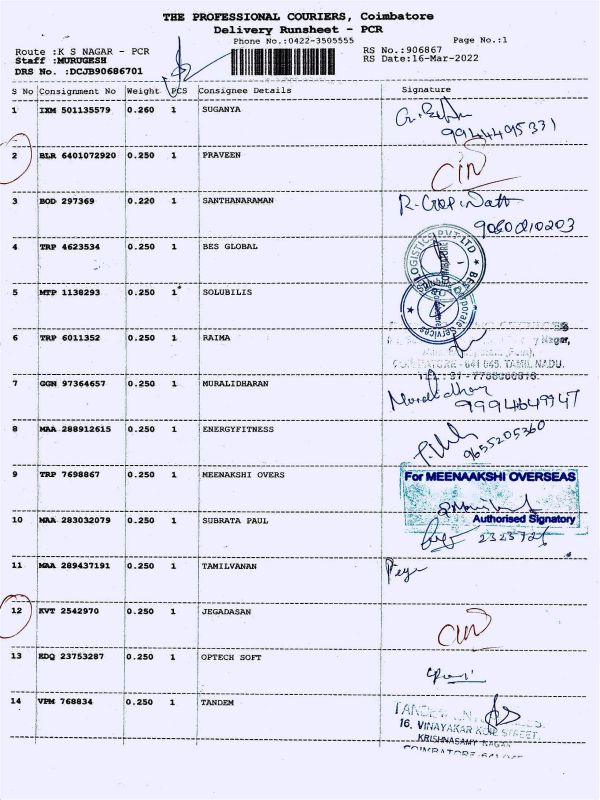 THE PROFESSIONAL COURIERS, Coimbatore
Delivery Runsheet - PCR
Phone No.:0422-3505555
Page No.:1
Route :K S NAGAR - PCR
RS No.:906867
Staff :MURUGESH
RS Date:16-Mar-2022
DRS No. :DCJB90686701
S No Consignment No Weight PCS Consignee Details Signature
1 IXM 501135579 0.260 1 SUGANYA
2 BLR 6401072920 0.250 1 PRAVEEN
3 BOD 297369 0.220 1 SANTHANARAMAN R. Gopinath
4 TRP 4623534 0.250 1 BES GLOBAL
LOGISTICS PVT LTD
5 MTP 1138293 0.250 1* SOLUBILIS
6 TRP 6011352 0.250 1 RAIMA
COIMBATORE - 641 045. TAMIL NADU.
7 GGN 97364657 0.250 1 MURALIDHARAN Muralidhar
8 MAA 288912615 0.250 1 ENERGYFITNESS
9655205360
9 TRP 7698867 0.250 1 MEENAKSHI OVERS
For MEENAAKSHI OVERSEAS
Authorised Signatory
10 MAA 283032079 0.250 1 SUBRATA PAUL
11 MAA 289437191 0.250 1 TAMILVANAN
12 KVT 2542970 0.250 1 JEGADASAN
13 EDQ 23753287 0.250 1 OPTECH SOFT
14 VPM 768834 0.250 1 TANDEM
16, VINAYAKAR KOIL STREET,
KRISHNASAMY NAGAR